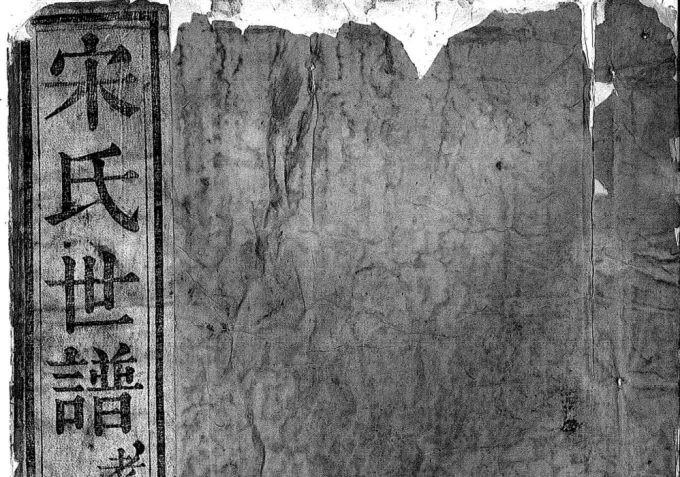 宋氏世譜